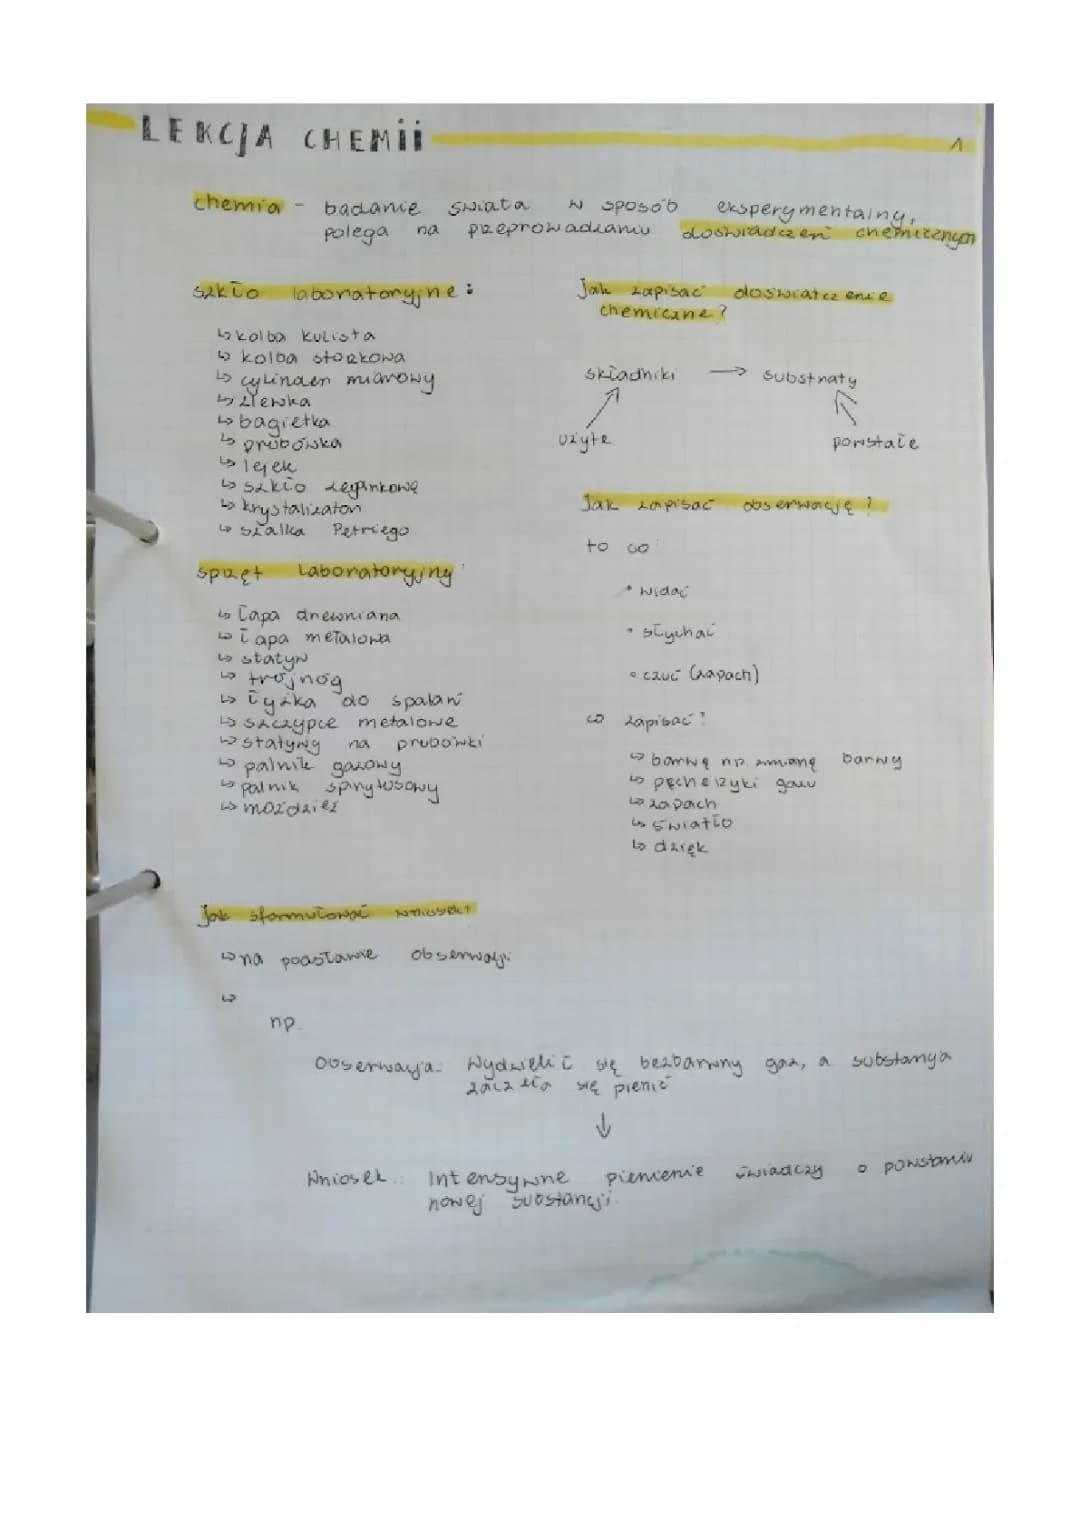 LEKCJA CHEMii
1
chemia - badanie świata w sposób eksperymentalny,
polega na przeprowadzaniu doświadczeń chemicznym
szkło laboratoryjne:
↳ kolba kulista
↳ kolba stożkowa
↳ cylinder miarowy
↳ zlewka
↳ bagietka
↳ probówka
↳ lejek
↳ szkło zegarkowe
↳ krystalizator
↳ szalka Petriego
sprzęt laboratoryjny
↳ łapa drewniana
↳ łapa metalowa
↳ statyw
↳ trójnóg
↳ łyżka do spalań
↳ szczypce metalowe
↳ statywy na probówki
↳ palnik gazowy
↳ palnik spirytusowy
↳ moździeż
jak zapisać doświatczenie
chemiczne?
składniki → substraty
użyte powstałe
Jak zapisać obserwację?
to co
• widać
• słychać
• czuć (zapach)
co zapisać?
↳ barwę np. zmianę barwy
↳ pęcherzyki gazu
↳ zapach
↳ światło
↳ dzięk
jak sformułować wniosek?
↳ na podstawie obserwacji
↳
np.
Obserwacja: Wydzielił się bezbarwny gaz, a substancja
zaczęła się pienić
↓
Wniosek.: Intensywne pienienie świadczy o powstaniu
nowej substancji.